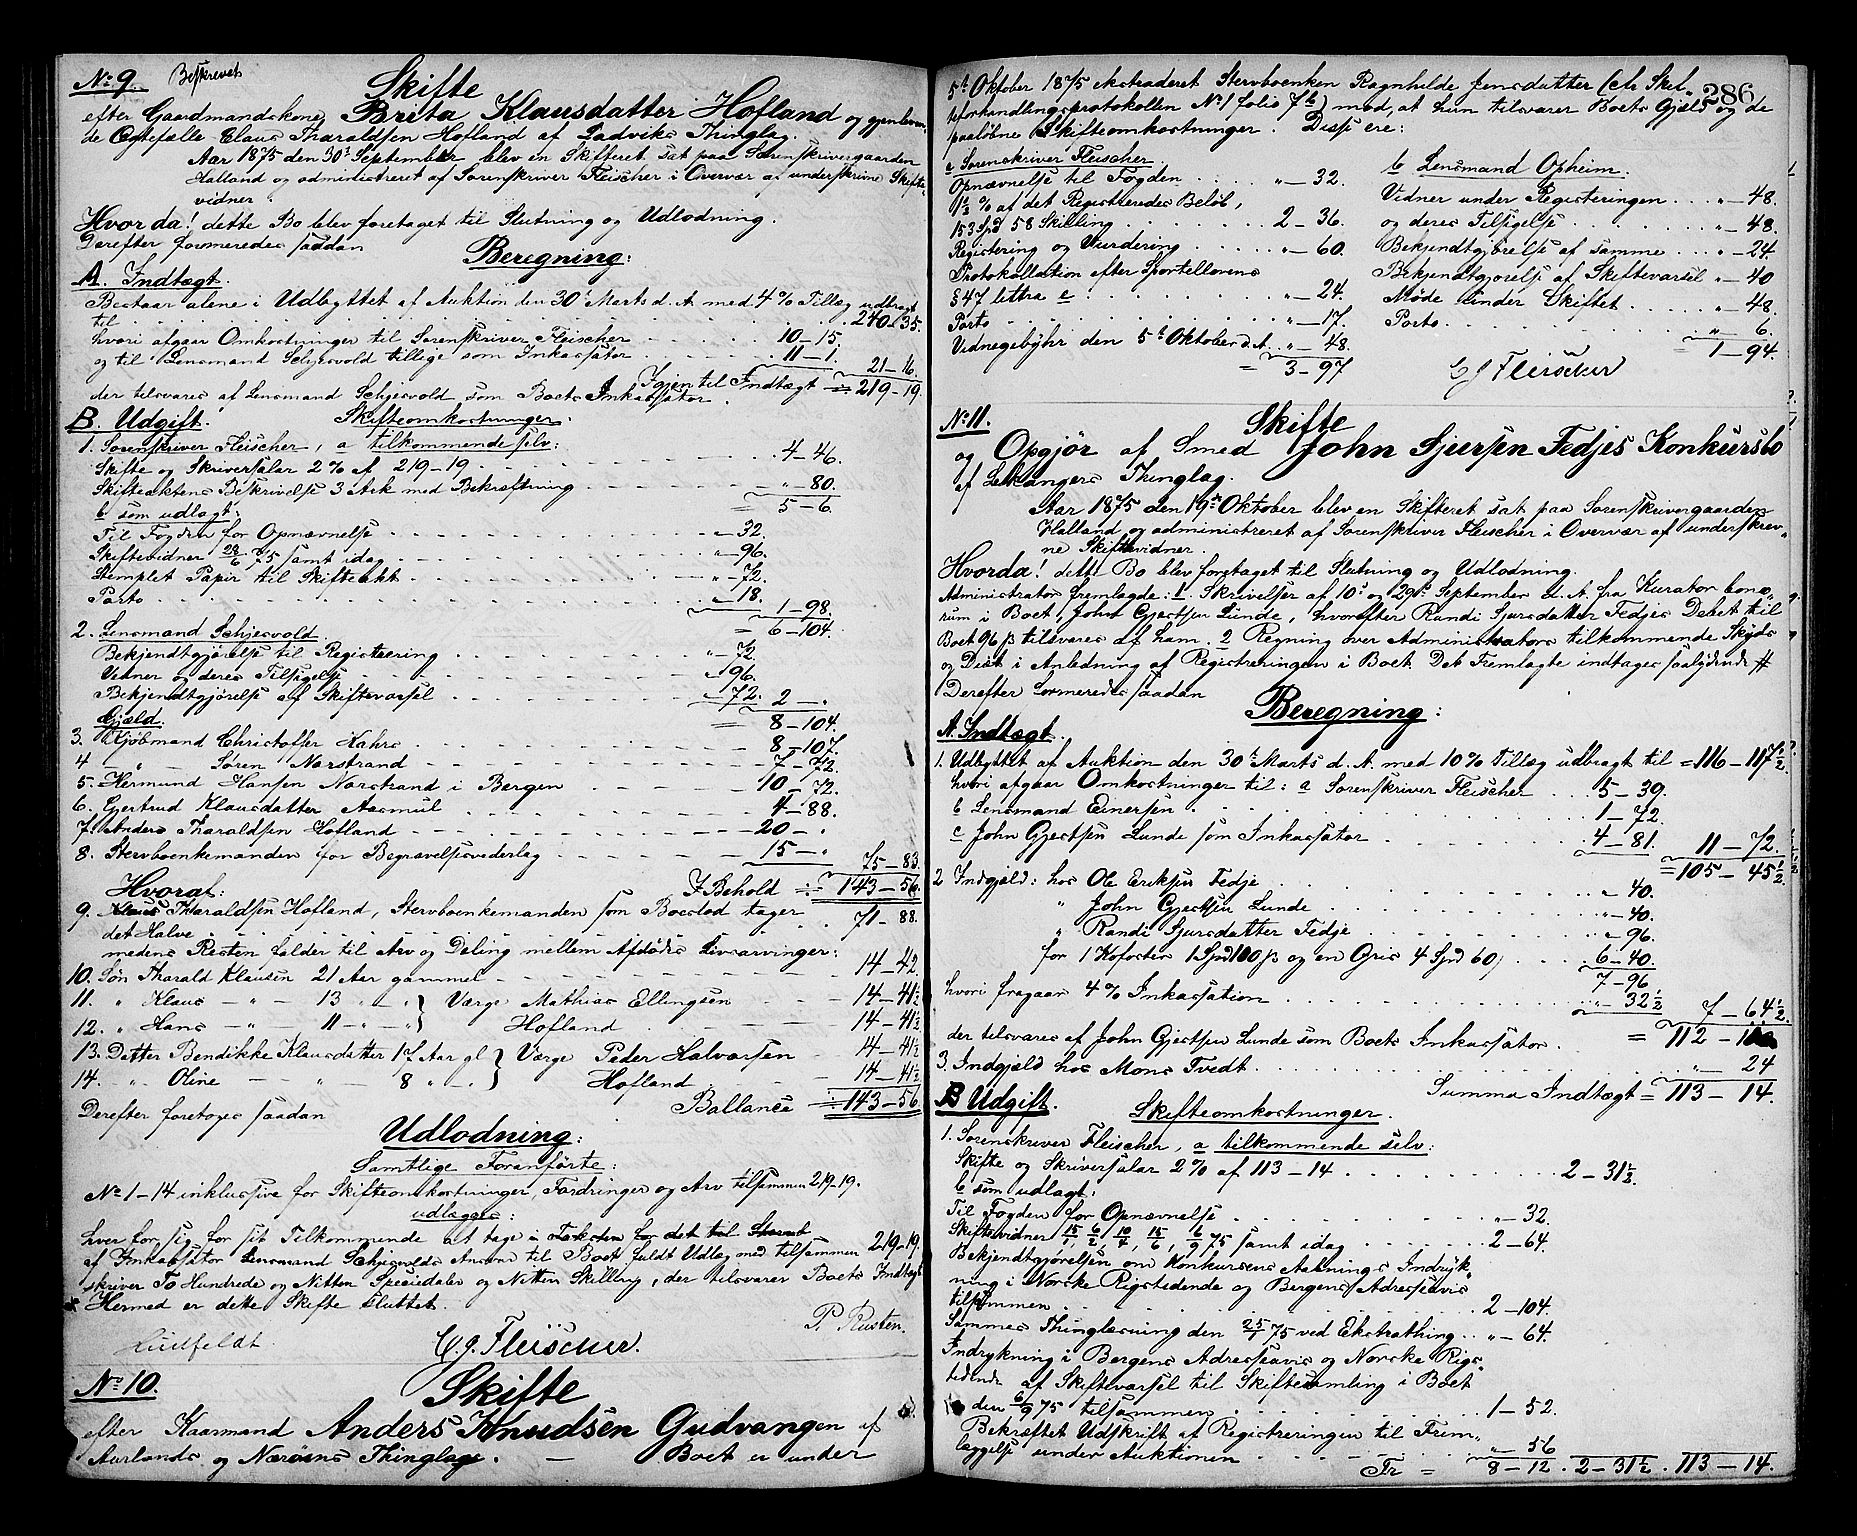 No 9. Beskrevet
Skifte
efter Gaardmandskone Brita Klausdatter Hofland og gjenleven-
de Ægtefælle Claus Tharaldsen Hofland af Ladviks Thinglag.
Aar 1875 den 30te September blev en Skifteret sat paa Sorenskrivergaarden
Halland og administreret af Sorenskriver Fleischer i Overvær af underskrivne Skifte-
vidner.
Hvorda! dette Bo blev foretaget til Slutning og Udlodning.
Derefter formeredes saadan
Beregning:
A. Indtægt.
Bestaar alene i Udbyttet af Auktion den 30te Marts d. A. med 4 % Tillæg udbragt
til 240 - 35.
hvori afgaar Omkostninger til Sorenskriver Fleischer 10 - 15.
og til Lensmand Schjesvold tillige som Inkassator 11 - 1. 21 - 16.
Igjen til Indtægt = 219 - 19.
der tilsvares af Lensmand Schjesvold som Boets Inkassator.
B. Udgift. Skifteomkostninger:
1. Sorenskriver Fleischer, a tilkommende selv:
Skifte og Skriversalær 2 % af 219 - 19 4 - 46.
Skifteaktens Beskrivelse 3 Ark med Bekræftning " - 80.
= 5 - 6.
b som udlagt:
Til Fogden for Opnævnelse " - 32.
Skiftevidner 28/6 75 samt idag " - 96.
Stemplet Papir til Skifteakt " - 72.
Porto " - 18.
1 - 98.
2. Lensmand Schjesvold. = 6 - 104.
Bekjendtgjørelse til Registrering " - 72.
Vidner og deres Tilsigelse " 96.
Bekjendtgjørelse af Skiftevarsel " - 72. 2 - "
Gjæld. = 8 - 104.
3. Kjøbmand Christoffer Kahrs 8 - 107.
4 - " - Søren Nørstrand 7 - 72.
5. Hermund Hansen Nørstrand i Bergen 10 - 72.
6. Gjertrud Klausdatter Aasmul 4 - 88.
7. Anders Tharaldsen Hofland 20 - "
8. Stervboenkemanden for Begravelsesvederlag 15 - " 75 - 83.
I Behold = 143 - 56.
Hvoraf:
9. Klaus Tharaldsen Hofland, Stervboenkemanden som Boeslod tager
det Halve 71 - 88.
medens Resten falder til Arv og Deling mellem Afdødes Livsarvinger:
10. Søn Tharald Klausen 21 Aar gammel 14 - 42.
11. " Klaus - " - 13 " - " } Værge Mathias Ellingsen 14 - 41½
12. " Hans - " - 11 - " - " } Hofland 14 - 41½
13. Datter Bendikke Klausdatter 17 Aar gl } Værge Peder Halvorsen 14 - 41½
14. - " - Oline - " - 8 " - " } Hofland 14 - 41½
Ballance = 143 - 56.
Derefter foretoges saadan
Udlodning:
Samtlige Foranførte:
No 1 - 14 inklusive for Skifteomkostninger, Fordringer og Arv tilsammen 219 - 19.
udlægges:
hver for sig for sit Tilkommende
af Inkassator Lensmand Schjesvolds Ansvar til Boet fuldt Udlæg med tilsammen 219 - 19.
skriver To Hundrede og Nitten Speciedaler og Nitten Skilling, der tilsvarer Boets Indtægt
Hermed er dette Skifte sluttet.
P. Rusten.
C. J. Fleischer.
No 10. Skifte
efter Kaarmand Anders Knudsen Gudvangen af
Aurlands og Nærøens Thinglag. - Boet er under
286
5te Oktober 1875 ekstraderet Stervboenken Ragnhilde Jensdatter (efr Skif-
teforhandlingsprotokollen No 1 folio 7b) med, at hun tilsvarer Boets Gjæld og de
paaløbne Skifteomkostninger. Disse ere:
a Sorenskriver Fleischer.
Opnævnelse til Fogden " - 32.
1½ % af det Registreredes Beløb,
153 Spd 58 Skilling 2 - 36.
Registering og Vurdering " - 60.
Protokollation efter Sportellovens
§ 47 littra c " - 24.
Porto " - 17.
Vidnegebyhr den 5te Oktober d. A. " - 48.
= 3 - 97
b Lensmand Opheim.
Vidner under Registeringen " - 48.
og deres Tilsigelse " - 48.
Bekjendtgjørelse af samme " - 24.
Bekjendtgjørelse af Skiftevarsel " - 40
Møde under Skiftet " - 48.
Porto " - 6.
= 1 - 94.
C J Fleischer
No 11. Skifte
og Opgjør af Smed John Sjursen Fedjes Konkursbo
af Lekangers Thinglag.
Aar 1875 den 19de Oktober blev en Skifteret sat paa Sorenskrivergaarden
Halland og administreret af Sorenskriver Fleischer i Overvær af underskrev-
ne Skiftevidner.
Hvorda! dette Bo blev foretaget til Slutning og Udlodning.
Administrator fremlagde: 1. Skrivelser af 10de og 29de September d. A. fra Kurator bono-
rum i Boet, John Gjertsen Lunde, hvorefter Randi Sjursdatter Fedjes Debet til
Boet 96 ß tilsvares af ham. 2 Regning over Administrators tilkommende Skyds
og Diæt i Anledning af Registreringen i Boet. Det Fremlagte indtages saalydende #
Derefter formeredes saadan
Beregning:
A. Indtægt.
1. Udbyttet af Auktion den 30te Marts d. A. med 10 % Tillæg udbragt til = 116 - 117½
hvori afgaar Omkostninger til: a Sorenskriver Fleischer 5 - 39.
b Lensmand Einersen 1 - 72.
c John Gjertsen Lunde som Inkassator 4 - 81. 11 - 72.
= 105 - 45½
2 Indgjæld: hos Ole Eriksen Fedje " 40.
" John Gjertsen Lunde " - 40.
" Randi Sjursdatter Fedje " - 96.
for 1 Kofoster 1 Spd 100 ß og en Gris 4 Spd 60, 6 - 40.
7 - 96
hvori fragaar 4 % Inkassation " - 32½ 7 - 64½
der tilsvares af John Gjertsen Lunde som Boets Inkassator. = 112 -
3. Indgjæld hos Mons Tvedt " - 24
Summa Indtægt = 113 - 14.
B Udgift. Skifteomkostninger.
1. Sorenskriver Fleischer, a tilkommende selv:
Skifte og Skriversalær 2 % af 113 - 14 2 - 31½
b som udlagt:
Til Fogden for Opnævnelse " - 32.
Skiftevidner 15/1, 6/2, 10/4, 15/6, 6/9 75 samt idag 2 - 64.
Bekjendtgjørelsen om Konkursens Aabnings Indryk-
ning i Norske Rigstidende og Bergens Adresseavis
tilsammen 2 - 104.
Sammes Thinglæsning den 25/1 75 ved Ekstrathing " - 64.
Indrykning i Bergens Adresseavis og Norske Rigs-
tidende af Skiftevarsel til Skiftesamling i Boet
den 6/9 75 tilsammen 1 - 52.
Bekræftet Udskrift af Registreringen til Frem-
læggelse under Auktionen " - 56
Tr = 8 - 12. 2 - 31½. 113 - 14.